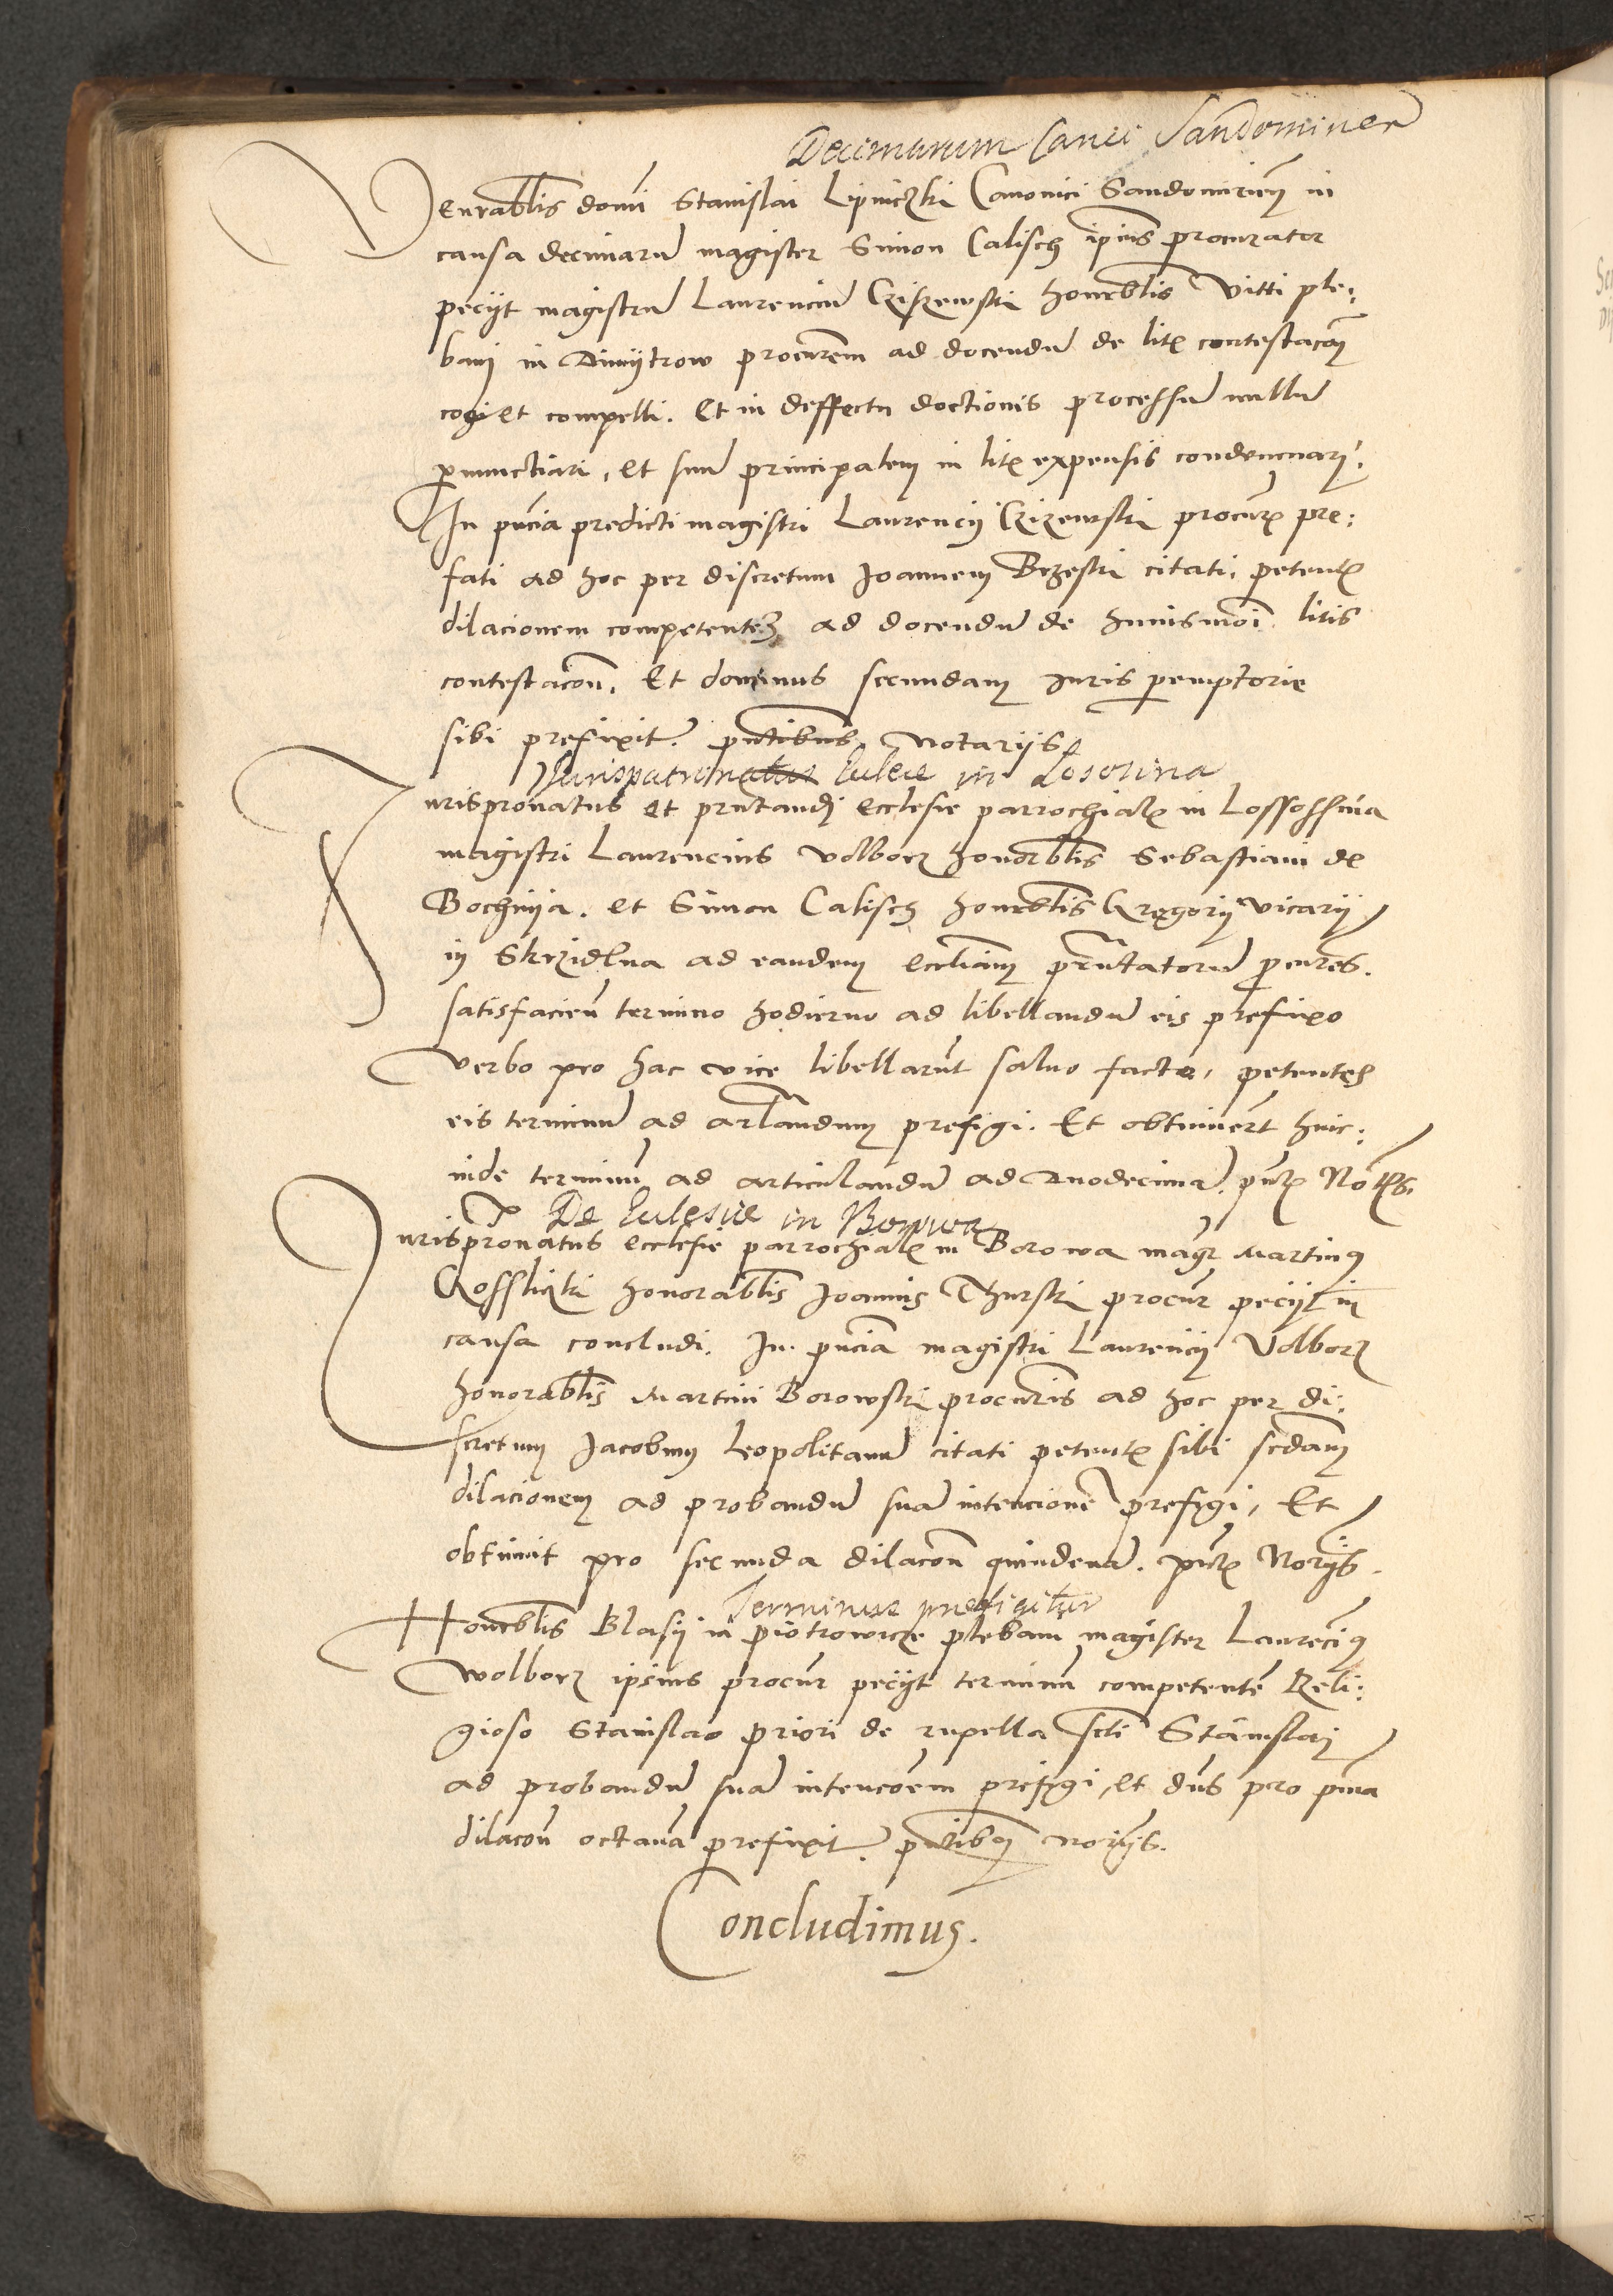 Decimarum Canci Sandomirien
Venerablis domi Stanislai Lipniczki Canonici Sandomirien in
causa decimarum magister Simon Calisch ipius procurator
peciit magistrum Laurencium Czissewski honorablis Vitti ple:
bani in Dimytrow procurem ad docendum de litis contestacoem
cogi et compelli. Et in deffectu doctionis processum nullum
pronunctiari, et suum principalem in litis expensis condemnari.
In pncia predicti magistri Laurencij Czizewski procuris pre:
fati ad hoc per discretum Joannem Brzeski citati, petentis
dilacionem competentem ad docendum de huiusmoi litis
contestacoem. Et dominus secundam iuris peremptorie
sibi prefixit. pntibus Notarijs
Jurispatronatus Eccleie in Lososina
Jurisproonatus et pntandi ecclesie parrochialis in Lossossina
magistri Laurencius Volborz honorablis Sebastiani de
Bochnija. et Simon Calisch honorablis Gregorij vicarij
in Skrzidlna ad eandem eccliam pntatorum procures.
satisfacien termino hodierno ad libellandum eis prefixo
verbo pro hac vice libellarunt salvo facto, petentes
eis terminum ad arlandum prefigi. Et obtinuert hinc:
inde terminum ad articulandum ad duodecimam. pntis Notrijs.
De Eclesie in Borowa
Jurisproonatus ecclesie parrochialis in Borowa magr Martinus
Kossliczki honorablis Joannis Thurski procur peciit in
causa concludi. In pncia magistri Laurencij Volborz
honorablis Martini Borowski procuris ad hoc per di:
scretum Jacobum Leopolitanum citati petentis sibi secdam
dilacionem ad probandum suam intencionem prefigi, Et
obtinuit pro secunda dilacoem quindenam. pntis Norijs.
Terminus prefigitur
Honorablis Blasij in Piotrowicze plebani magister Laurencius
Wolborz ipsius procur peciit terminum competentem Reli:
gioso Stanislao priori de rupella scti Stanislai
ad probandum suam intencoem prefigi, et dns pro prima
dilacoem octavam prefixit. pntibus Norijs.
Concludimus.